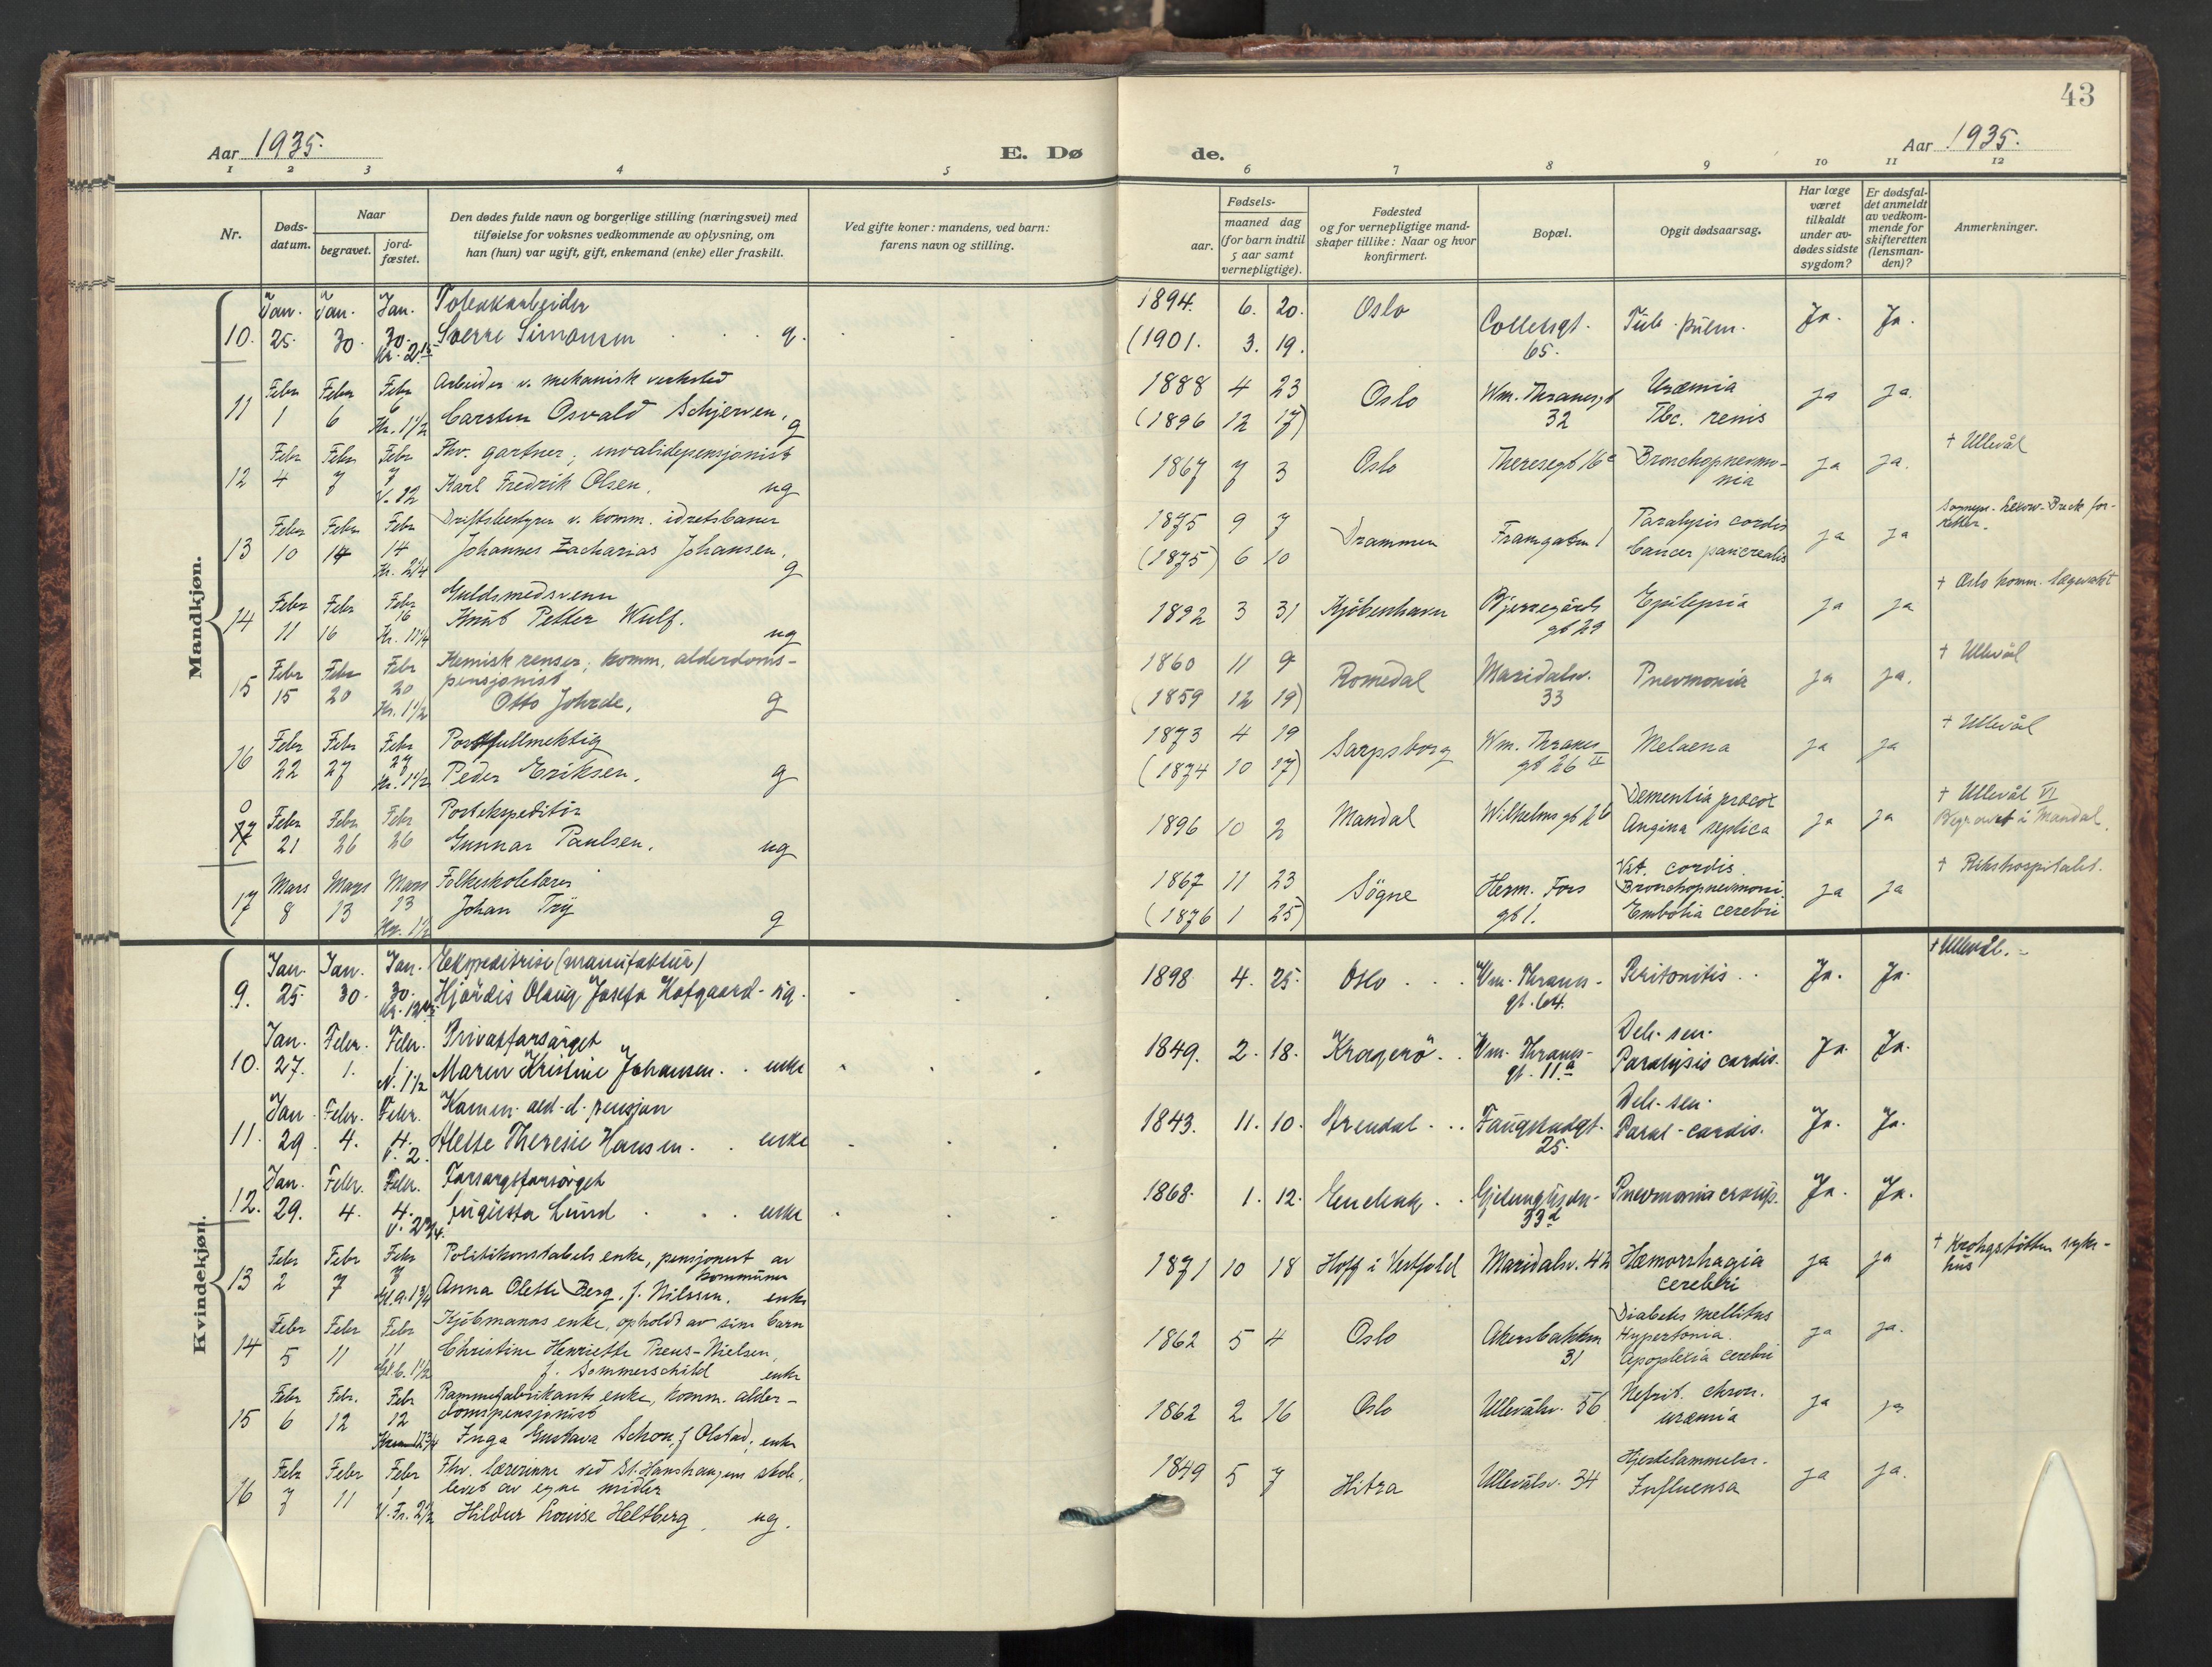 43
Aar 1935.
E. Dø
de.
Aar 1935.
1 2 3 4 5 6 7 8 9 10 11 12
Nr.
Døds-
datum.
Naar
begravet.
jord-
fæstet.
Den dødes fulde navn og borgerlige stilling (næringsvei) med
tilføielse for voksnes vedkommende av oplysning, om
han (hun) var ugift, gift, enkemand (enke) eller fraskilt.
Ved gifte koner: mandens, ved barn:
farens navn og stilling.
Fødsels-
aar.
maaned dag
(for barn indtil
5 aar samt
vernepligtige).
Fødested
og for vernepligtige mand-
skaper tillike: Naar og hvor
konfirmert.
Bopæl.
Opgit dødsaarsag.
Har læge
været
tilkaldt
under av-
dødes sidste
sygdom?
Er dødsfal-
det anmeldt
av vedkom-
mende for
skifteretten
(lensman-
den)?
Anmerkninger.
Mandkjøn.
Jan. Jan. Jan. Tobakkarbeider 1894. 6. 20. Oslo
10. 25. 30. 30. Sverre Simonsen g. (1901. 3. 19. 65. Tub. pulm. Ja. Ja.
Febr Febr Febr Arbeider v. mekanisk verksted 1888 4 23 Oslo Wm. Thranesgt Uræmia ja ja.
11 1 6 6 Kr. 1 1/2 Carsten Osvald Schjerven, g (1896 12 17) 32 Tbc. renis
Febr Febr Febr Fhv. gartner, invalidepensjonist + Ullevål
12 4 7 7 V. 12 Karl Fredrik Olsen, ug 1867 7 3 Oslo Theresegt 16c Bronchopnevmo-
nia ja ja.
Febr Febr Febr Driftsbestyrer v. komm. idretsbaner 1875 9 7 Drammen Framgaten 1 Paralysis cordis ja ja
13 10 14 14 Kr. 2 1/4 Johannes Zacharias Johansen, g (1875) 6 10 Cancer pancreatis
Febr Febr Febr Guldsmedsvenn + Oslo komm. lægevakt
14 11 16 16 Knut Petter Wulf. ug 1892 3 31 Kjöbenhavn Bjerregårds
gt 29 Epilepsia ja ja
Febr Febr Febr Kemisk renser, komm. alderdoms-
pensjonist + Ullevål
15 15 20 20 Kr. 1 1/2 Otto Johrde, g 1860 11 9 Romedal Maridalsv.
33 Pnevmonia ja ja.
(1859 12 19)
Febr Febr Febr Postfullmektig 1873 4 19 Sarpsborg Wm. Thranes
gt 26 II Melaena ja ja + Ullevål
16 22 27 27 Kr. 1 1/2 Peder Eriksen. g (1874 10 17)
0 Febr Febr Febr Postekspeditör + Ullevål VI
21 26 26 Gunnar Paulsen. ug 1896 10 2 Mandal Wilhelmsgt 2b Dementia præcox
Angina septica ja ja Begravet i Mandal.
Mars Mars Mars Folkeskolelærer 1867 11 23 Sögne Herm. Foss
gt 1. Vit. cordis.
Bronchopnevmoni
Embolia cerebri ja ja + Rikshospitalet.
17 8 13 13 Kr. 1 1/2 Johan Try g (1876 1 25)
Kvindekjøn.
Jan. Jan. Jan. Ekspeditrise (manufaktur) + Ullevål.
9. 25. 30. 30. Hjördis Olaug Josefa Hofgaard - ug. 1898 4. 25. Oslo Wm. Thranes-
gt. 64. Peritonitis Ja. Ja.
Jan. Febr. Febr. Privatforsörget
10. 27. 1. 1. N. 1 1/2 Maren Kristine Johansen. enke 1849. 2. 18. Kragerö Wm. Thranes-
gt. 11a Deb. sen.
Paralysis cordis. Ja Ja.
Jan. Febr. Febr. Komm. ald. d. pensjon
11. 29 4. 4. V. 2. Alette Theresie Hansen. enke 1843. 11. 10. Arendal Faugstadgt.
25. Deb. sen.
Paral. cordis. Ja. Ja.
Jan. Febr. Febr.
12. 29. 4. 4. V. 2 Augusta Lund enke 1868. 1. 12. Enebak
33d Pnevmonia croup. Ja. Ja.
Febr Febr Febr Politikonstabels enke, pensjonert av
kommunen
13 2 7 7 Anna Olette Berg, f. Nilssen. enke 1871 10 18 Hoff i Vestfold Maridalsv. 42 Hæmorrhagia
cerebri ja ja + Krohgstötten syke-
hus
Febr Febr Febr Kjöbmanns enke, opholdt av sine barn
14 5 11 11 Christine Henriette Preus-Nielsen,
f. Sommerschild enke 1862 5 4 Oslo Akersbakken
31 Diabetes mellitus
Hypertonia.
Apoplexia cerebri ja ja.
Febr Febr. Febr Rammefabrikants enke, komm. alder-
domspensjonist
15 6 12 12 Inga Gustava Schou, f Olstad, enke 1862 2 16 Oslo Ullevålsv. 56 Nefrit. chron.
uræmia ja ja
Febr Febr Febr Fhv. lærerinne ved St. Hanshaugen skole,
levet av egne midler
16 7 11 V. Fr. 2 1/2 Hildur Louise Heltberg, ug. 1849 5 7 Hitra Ullevålsv. 34 Hjertelammelse.
Influensa ja ja.